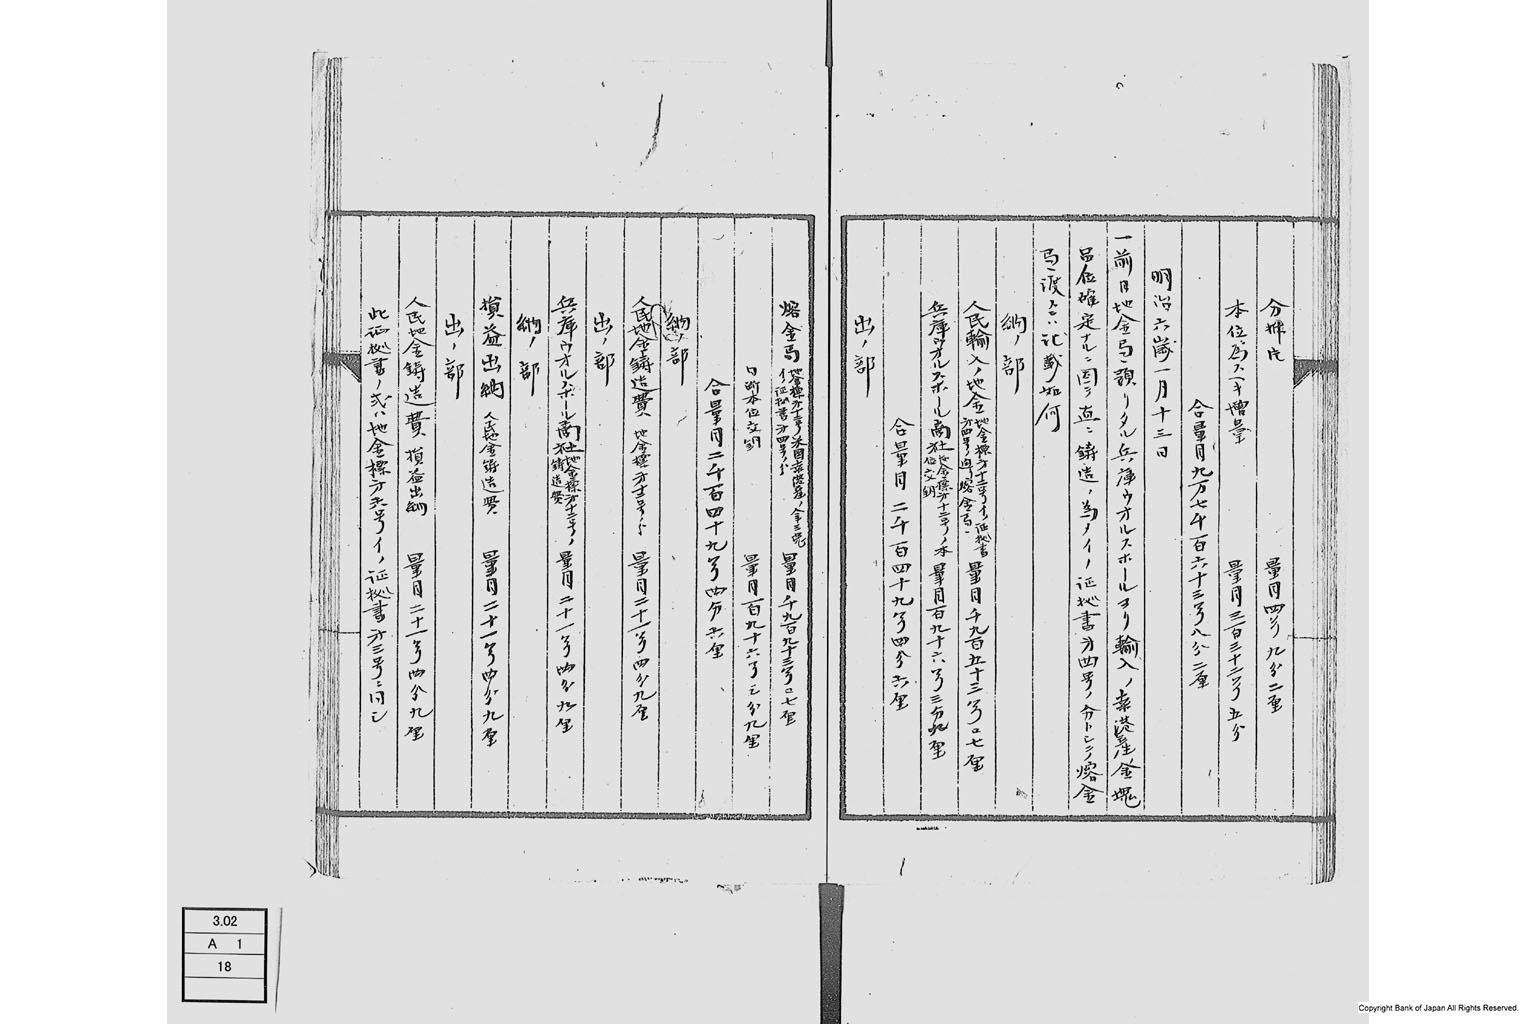 分析片 量目四匁九分二厘
本位為ス一キ増量 量目三百三十二匁五分
合量目九万七千百六十三匁八分二厘
明治六歳一月十三日
一前日地金局ニ預リタル兵庫ヲオルスホールヨリ輸入ノ香港産金塊
品位確定ナルニ因リ直ニ鋳造ノ為メイノ証拠書方四号ノ分トシテ熔金
局ニ渡ス其記載如何
納ノ部
人民輸入ノ地金 量目千九百五十三匁〇七厘
兵庫ヲオルスホール商社地金標方十二号ノ本位交納 量目百九十六匁三分九厘
合量目二千百四十九匁四分六厘
出ノ部
熔金局 地金標方十二号 香港産ノ金三塊 イノ証拠書方四号ノ分 量目千九百五十三匁〇七厘
本位交納 量目百九十六匁三分九厘
合量目二千百四十九匁四分六厘
納ノ部
人民地金鋳造費 地金標方十二号ノ分 量目二十一匁四分九厘
出ノ部
兵庫ヲオルスホール商社地金標方十二号ノ鋳造費 量目二十一匁四分九厘
納ノ部
損益出納 人民地金鋳造費 量目二十一匁四分九厘
出ノ部
人民地金鋳造費 損益出納 量目二十一匁四分九厘
此証拠書ノ式ハ地金標方六号イノ証拠書方三号ニ同シ
3.02
A 1
18
Copyright Bank of Japan All Rights Reserved.